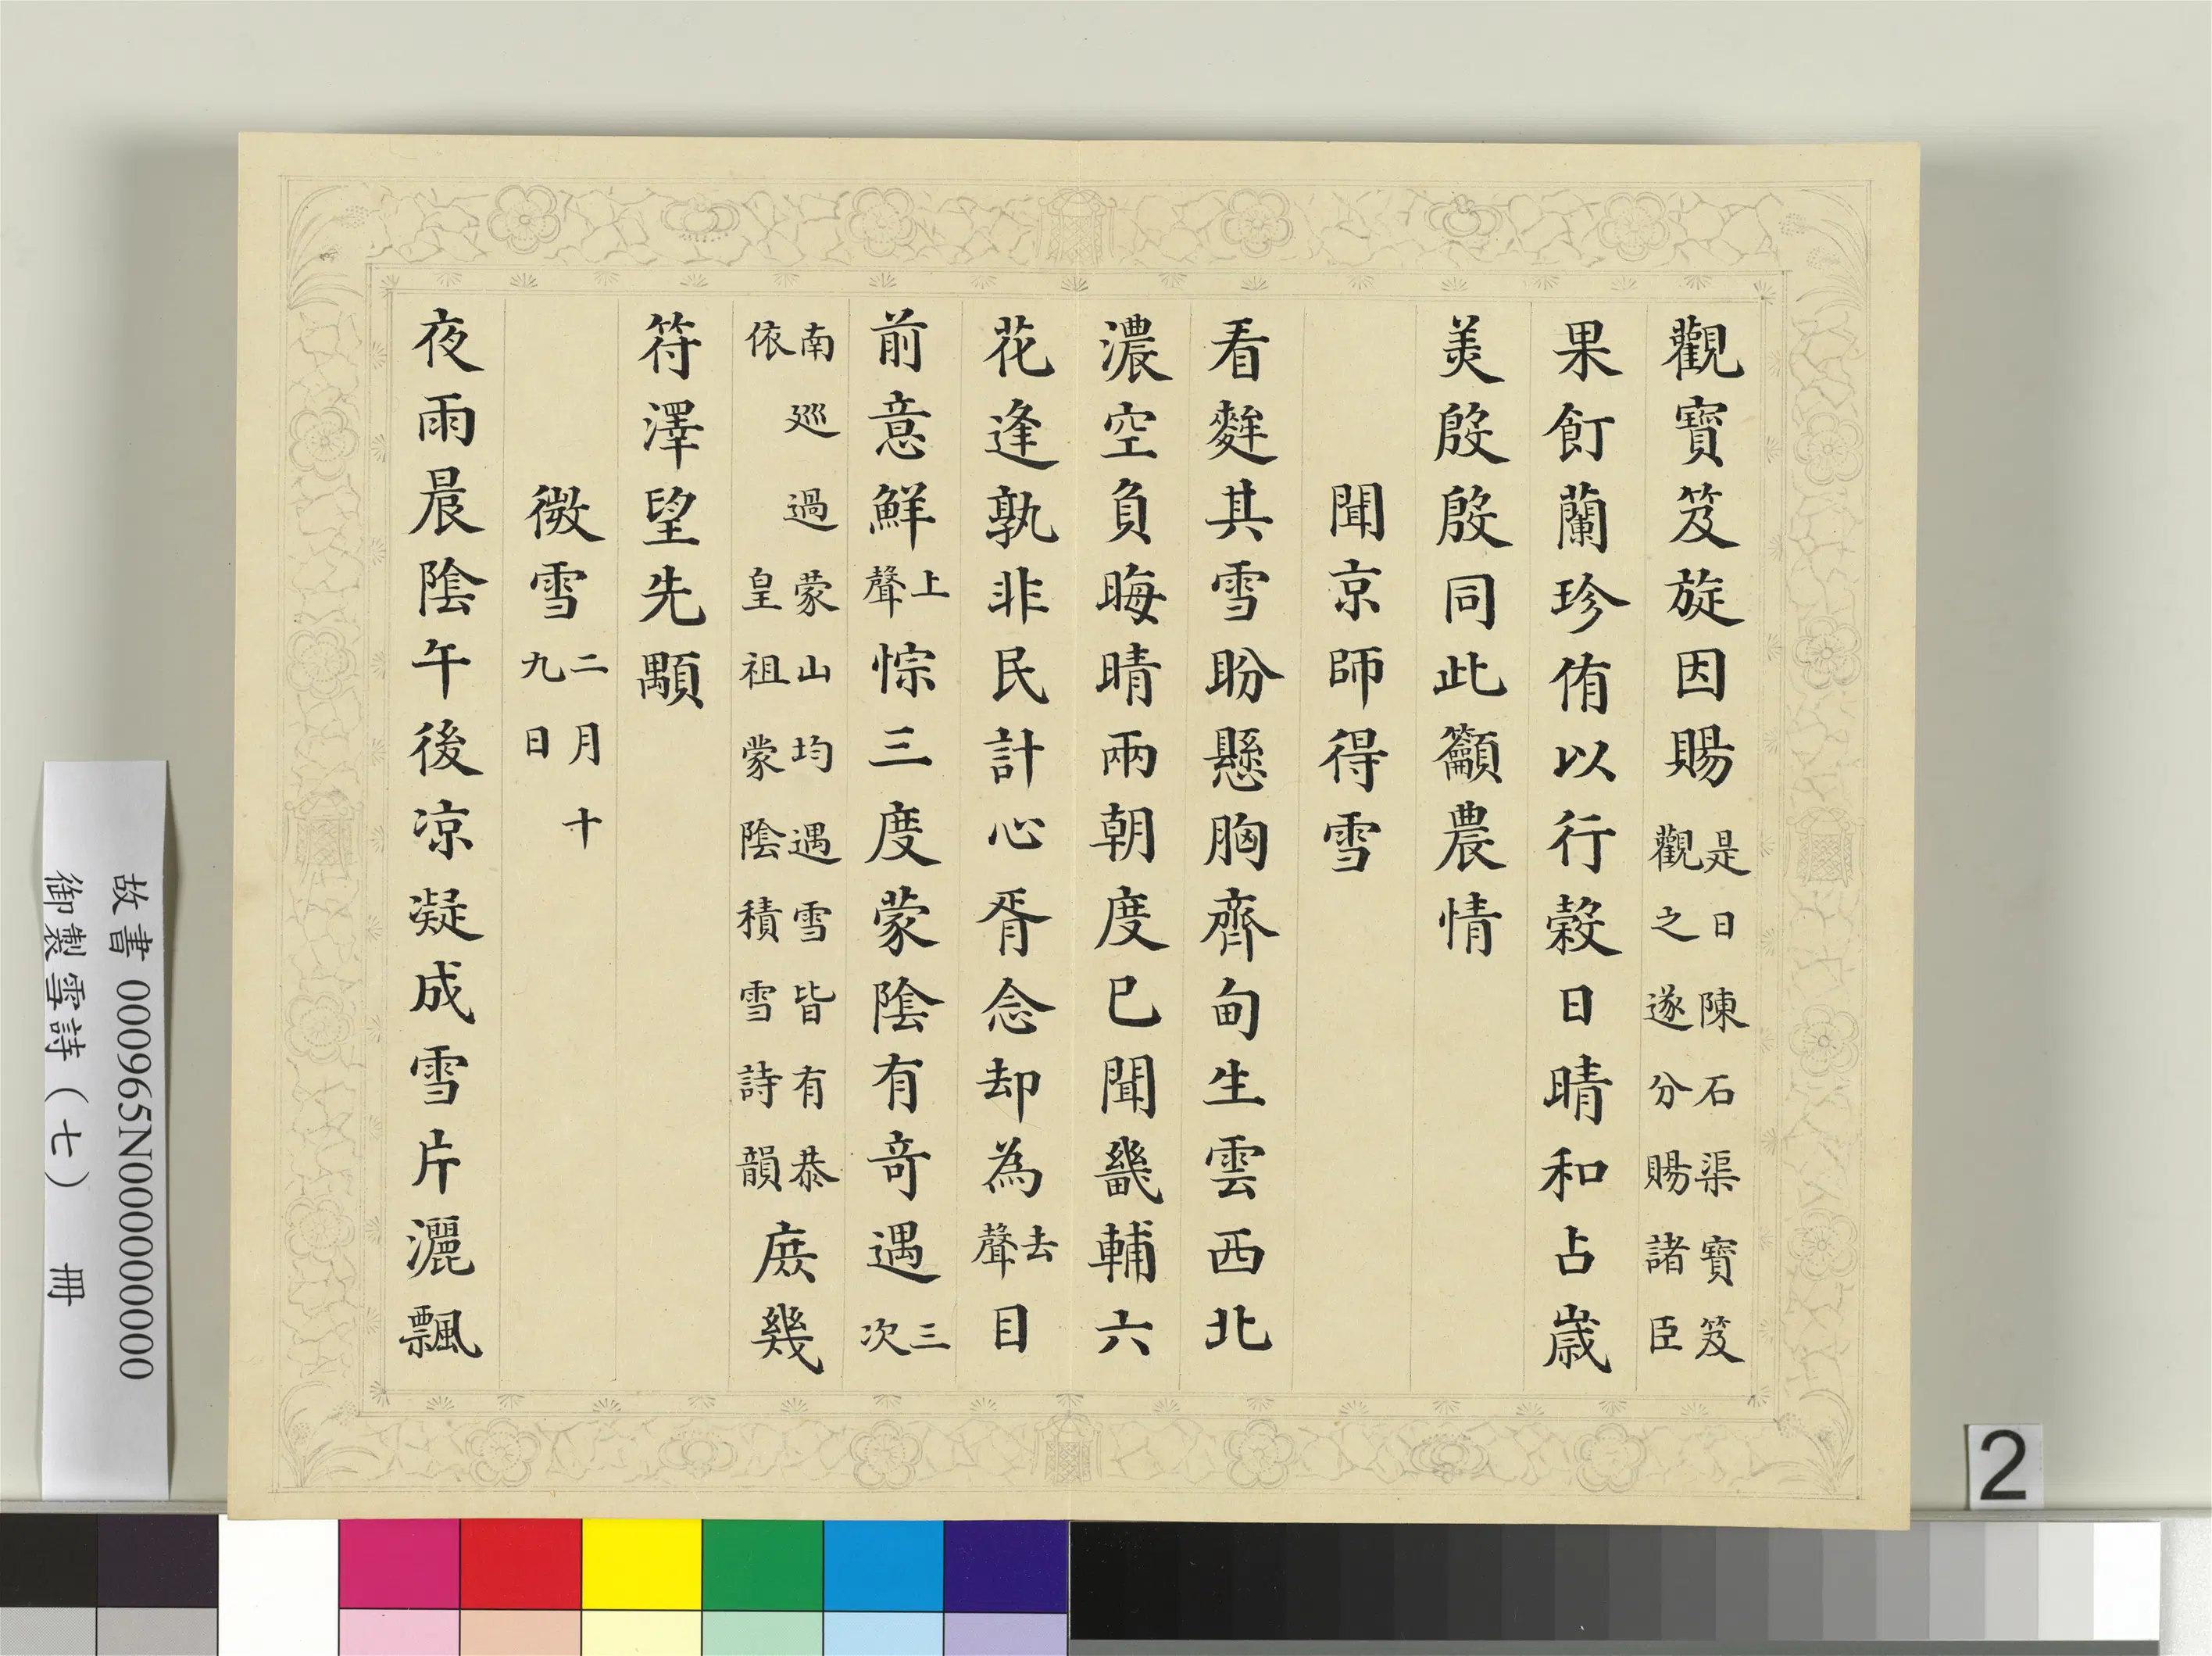 觀寶笈旋因賜是日陳石渠寶笈觀之遂分賜諸臣
果飣蘭珍侑以行榖日晴和占歲
羙殷殷同此籲農情
聞京師得雪
看麰其雪盼懸胸齊甸生雲西北
濃空負晦晴兩朝度已聞畿輔六
花逢孰非民計心胥念却為去聲目
前意鮮上聲悰三度蒙陰有竒遇三次
南巡過蒙山均遇雪皆有恭依皇祖蒙陰積雪詩韻庻幾
符澤望先顒
微雪二月十九日
夜雨晨陰午後凉凝成雪片灑飄
故書 000965N000000000
御製雪詩（七） 冊
2